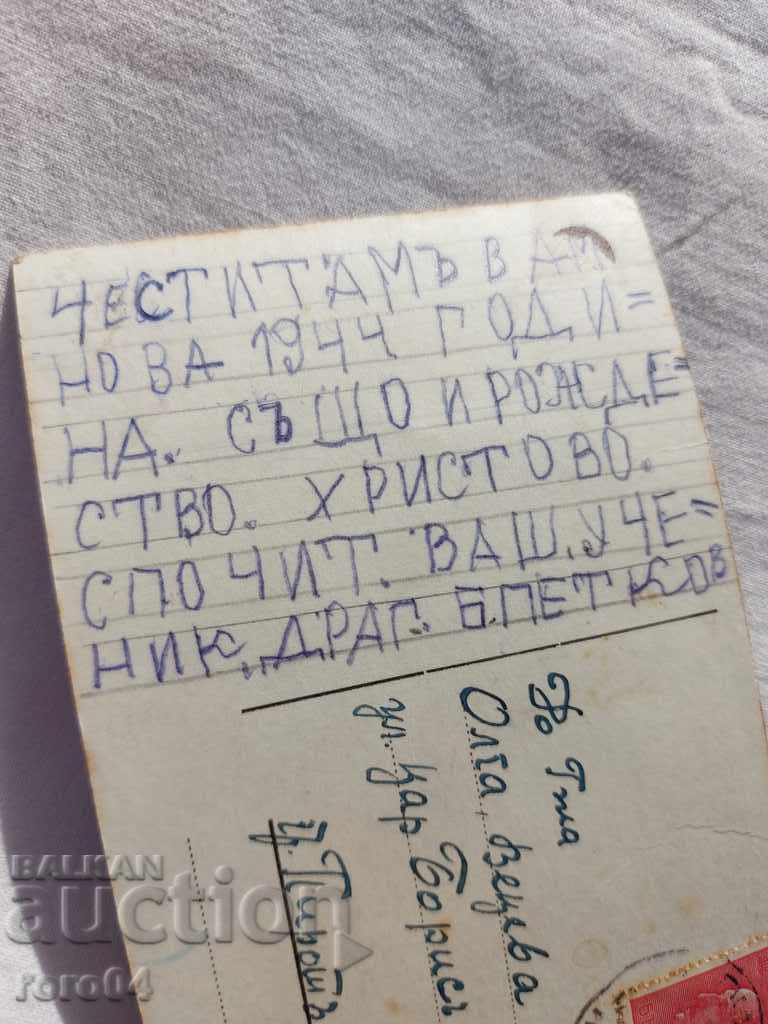 ЧЕСТИТАМЪ ВАМ
НОВА 1944 ГОДИ=
НА. СЪЩО И РОЖДЕ=
СТВО. ХРИСТОВО.
С ПОЧИТ. ВАШ. УЧЕ=
НИК. ДРАГ. Б. ПЕТКОВ
До Г-жа
Олга Вецева
ул. Цар Борисъ
Ц. Пиротъ
BALKAN
auction
roro04